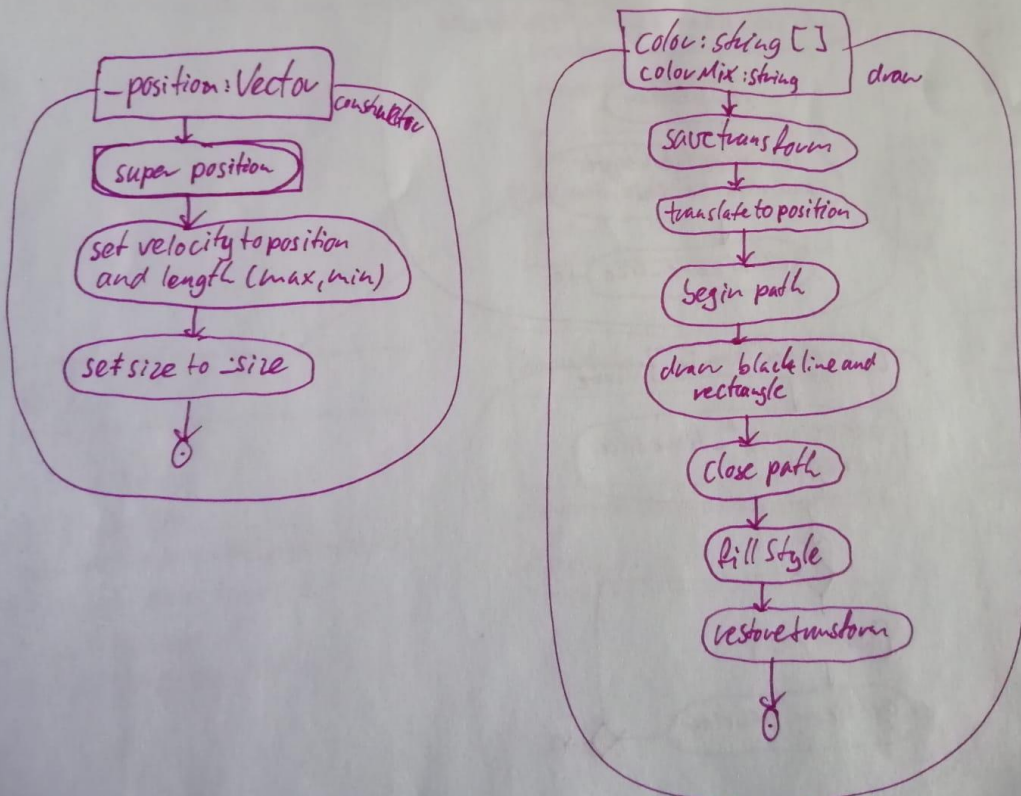 _position: Vector
constructor
super position
set velocity to position
and length (max, min)
set size to _size
color: string []
colorMix: string
draw
save transform
translate to position
begin path
draw black line and
rectangle
close path
fillStyle
restore transform